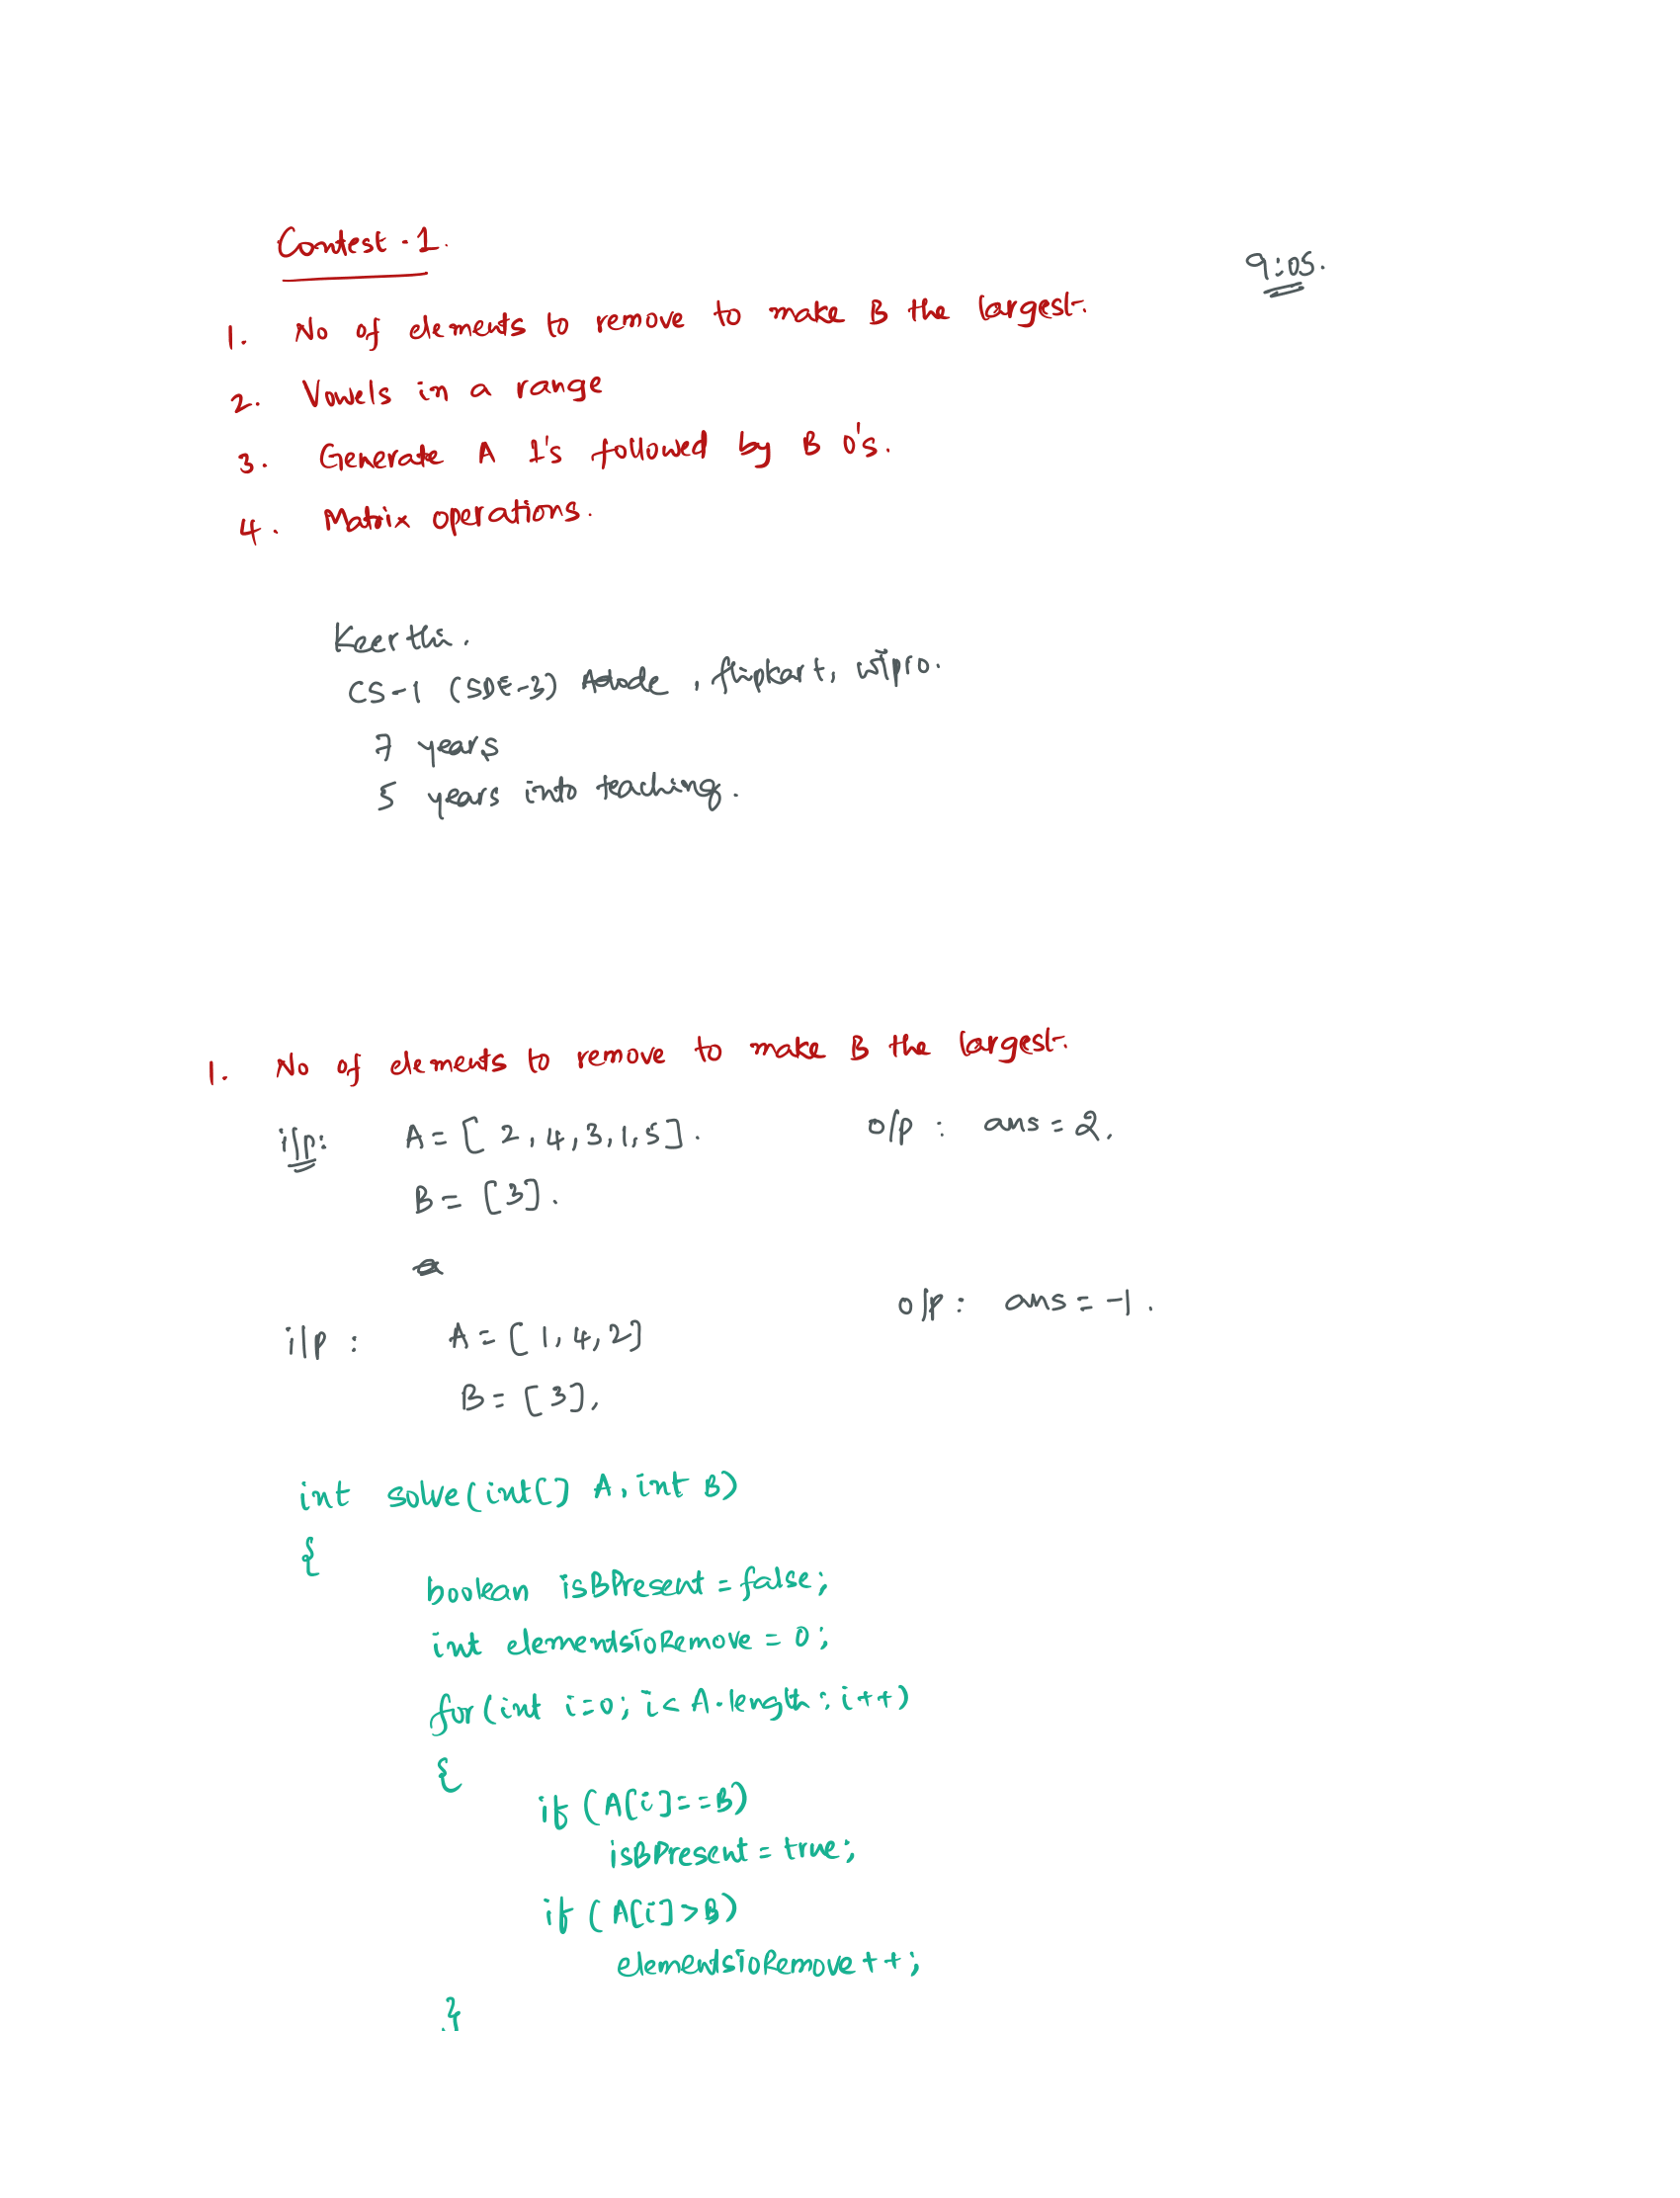 Contest - 1.
9:05.
1. No of elements to remove to make B the largest.
2. Vowels in a range
3. Generate A 1's followed by B 0's.
4. Matrix operations.
Keerthi.
CS-1 (SDE-3) Adode, flipkart, wipro.
7 years
5 years into teaching.
1. No of elements to remove to make B the largest.
i/p: A = [2, 4, 3, 1, 5]. o/p : ans = 2.
B = [3].
i/p : A = [1, 4, 2] o/p : ans = -1.
B = [3],
int solve(int[] A, int B)
{
boolean isBPresent = false;
int elementsToRemove = 0;
for(int i=0; i< A.length; i++)
{
if (A[i]==B)
isBPresent = true;
if (A[i]>B)
elementsToRemove++;
}